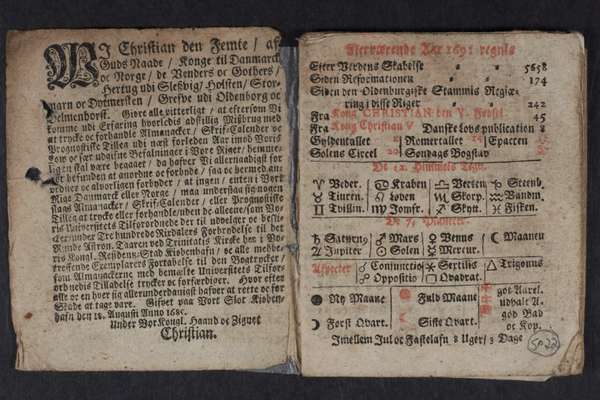 WJ Christian den Femte / af
Guds Naade / Konge til Danmarck
oc Norge / de Venders oc Gothers /
Hertug udi Sleßvig / Holsten / Stor-
marn oc Dytmersken / Grefve udi Oldenborg oc
Delmenhorst. Giøre alle vitterligt / at eftersom Vi
komme udi Erfaring hvorledis adskillig Misbrug med
at trycke oc forhandle Almanacker / Skrif-Calender oc
Prognostiske Tilleg udi næst forleden Aar imod Voris
Low oc sær udgifne Befalninger i Vore Riger / hemme-
ligen skal være begaaet / da hafver Vi allernaadigst for
got befunden at anordne oc forbyde / saa oc hermed an-
ordner oc alvorligen forbyder / at ingen / enten i Vort
Rige Danmarck eller Norge / maa understaa sig nogen
slags Almanacker / Skrif-Calender / eller Prognostiske
Tilleg at trycke eller forhandle / uden de alleene / som Vo-
ris Universitets Tilforordnede der til udvelger oc be-
under Tre hundrede Rixdalers Forbrydelse til det
Runde Kirken. Taaren ved Trinitatis Kircke her i Vo-
ris Kongl. Residenz-Stad Kiøbenhafn / oc alle
Exemplarers Fortabelse til den Bogtrycker /
som Almanackerne med bemælte Universitets Tilfor-
ordnedis Tilladelse trycker oc forfærdiger. Hvor efter
alle oc en hver sig allerunderdanigst hafver at rette oc for
Skade at tage vare. Gifvet paa Vort Slot Kiøben-
hafn den 18. Augusti Anno 1680.
Under Vor Kongl. Haand oc Zignet
Christian.
Nærværende Aar 1691 regnis
Efter Verdens Skabelse 5658
Siden Reformationen 174
Siden den Oldenburgiske Stammis Regiæ-
ring i disse Riger 242
Fra Kong CHRISTIAN den V. Fødsel 45
Fra Kong Christian V Danske Lovs publication 8
Gyldentallet Romertallet 14 Epacten
Solens Circel 20 Søndags Bogstav
De 12. Himmels Tegn.
♈ Veder. ♋ Kraben ♎ Vecten ♑ Steenb.
♉ Tiuren. ♌ Løven ♏ Skorp. ♒ Vandm.
♊ Tvillin. ♍ Jomfr. ♐ Skyt. ♓ Fisken.
De 7. Planeter.
♄ Saturnus ♂ Mars ♀ Venus ☾ Maanen
♃ Jupiter ☉ Solen ☿ Mercur.
Aspecter ☌ Conjunctio ⚹ Sextilis △ Trigonus
☍ Oppositio □ Qvadrat.
● Ny Maane Fuld Maane got Aarel.
udvalt A.
☽ Først Qvart. Siste Qvart. god Bad
oc Kop.
Imellem Jul oc Fastelafn 8 Uger / 3 Dage
Sp 22